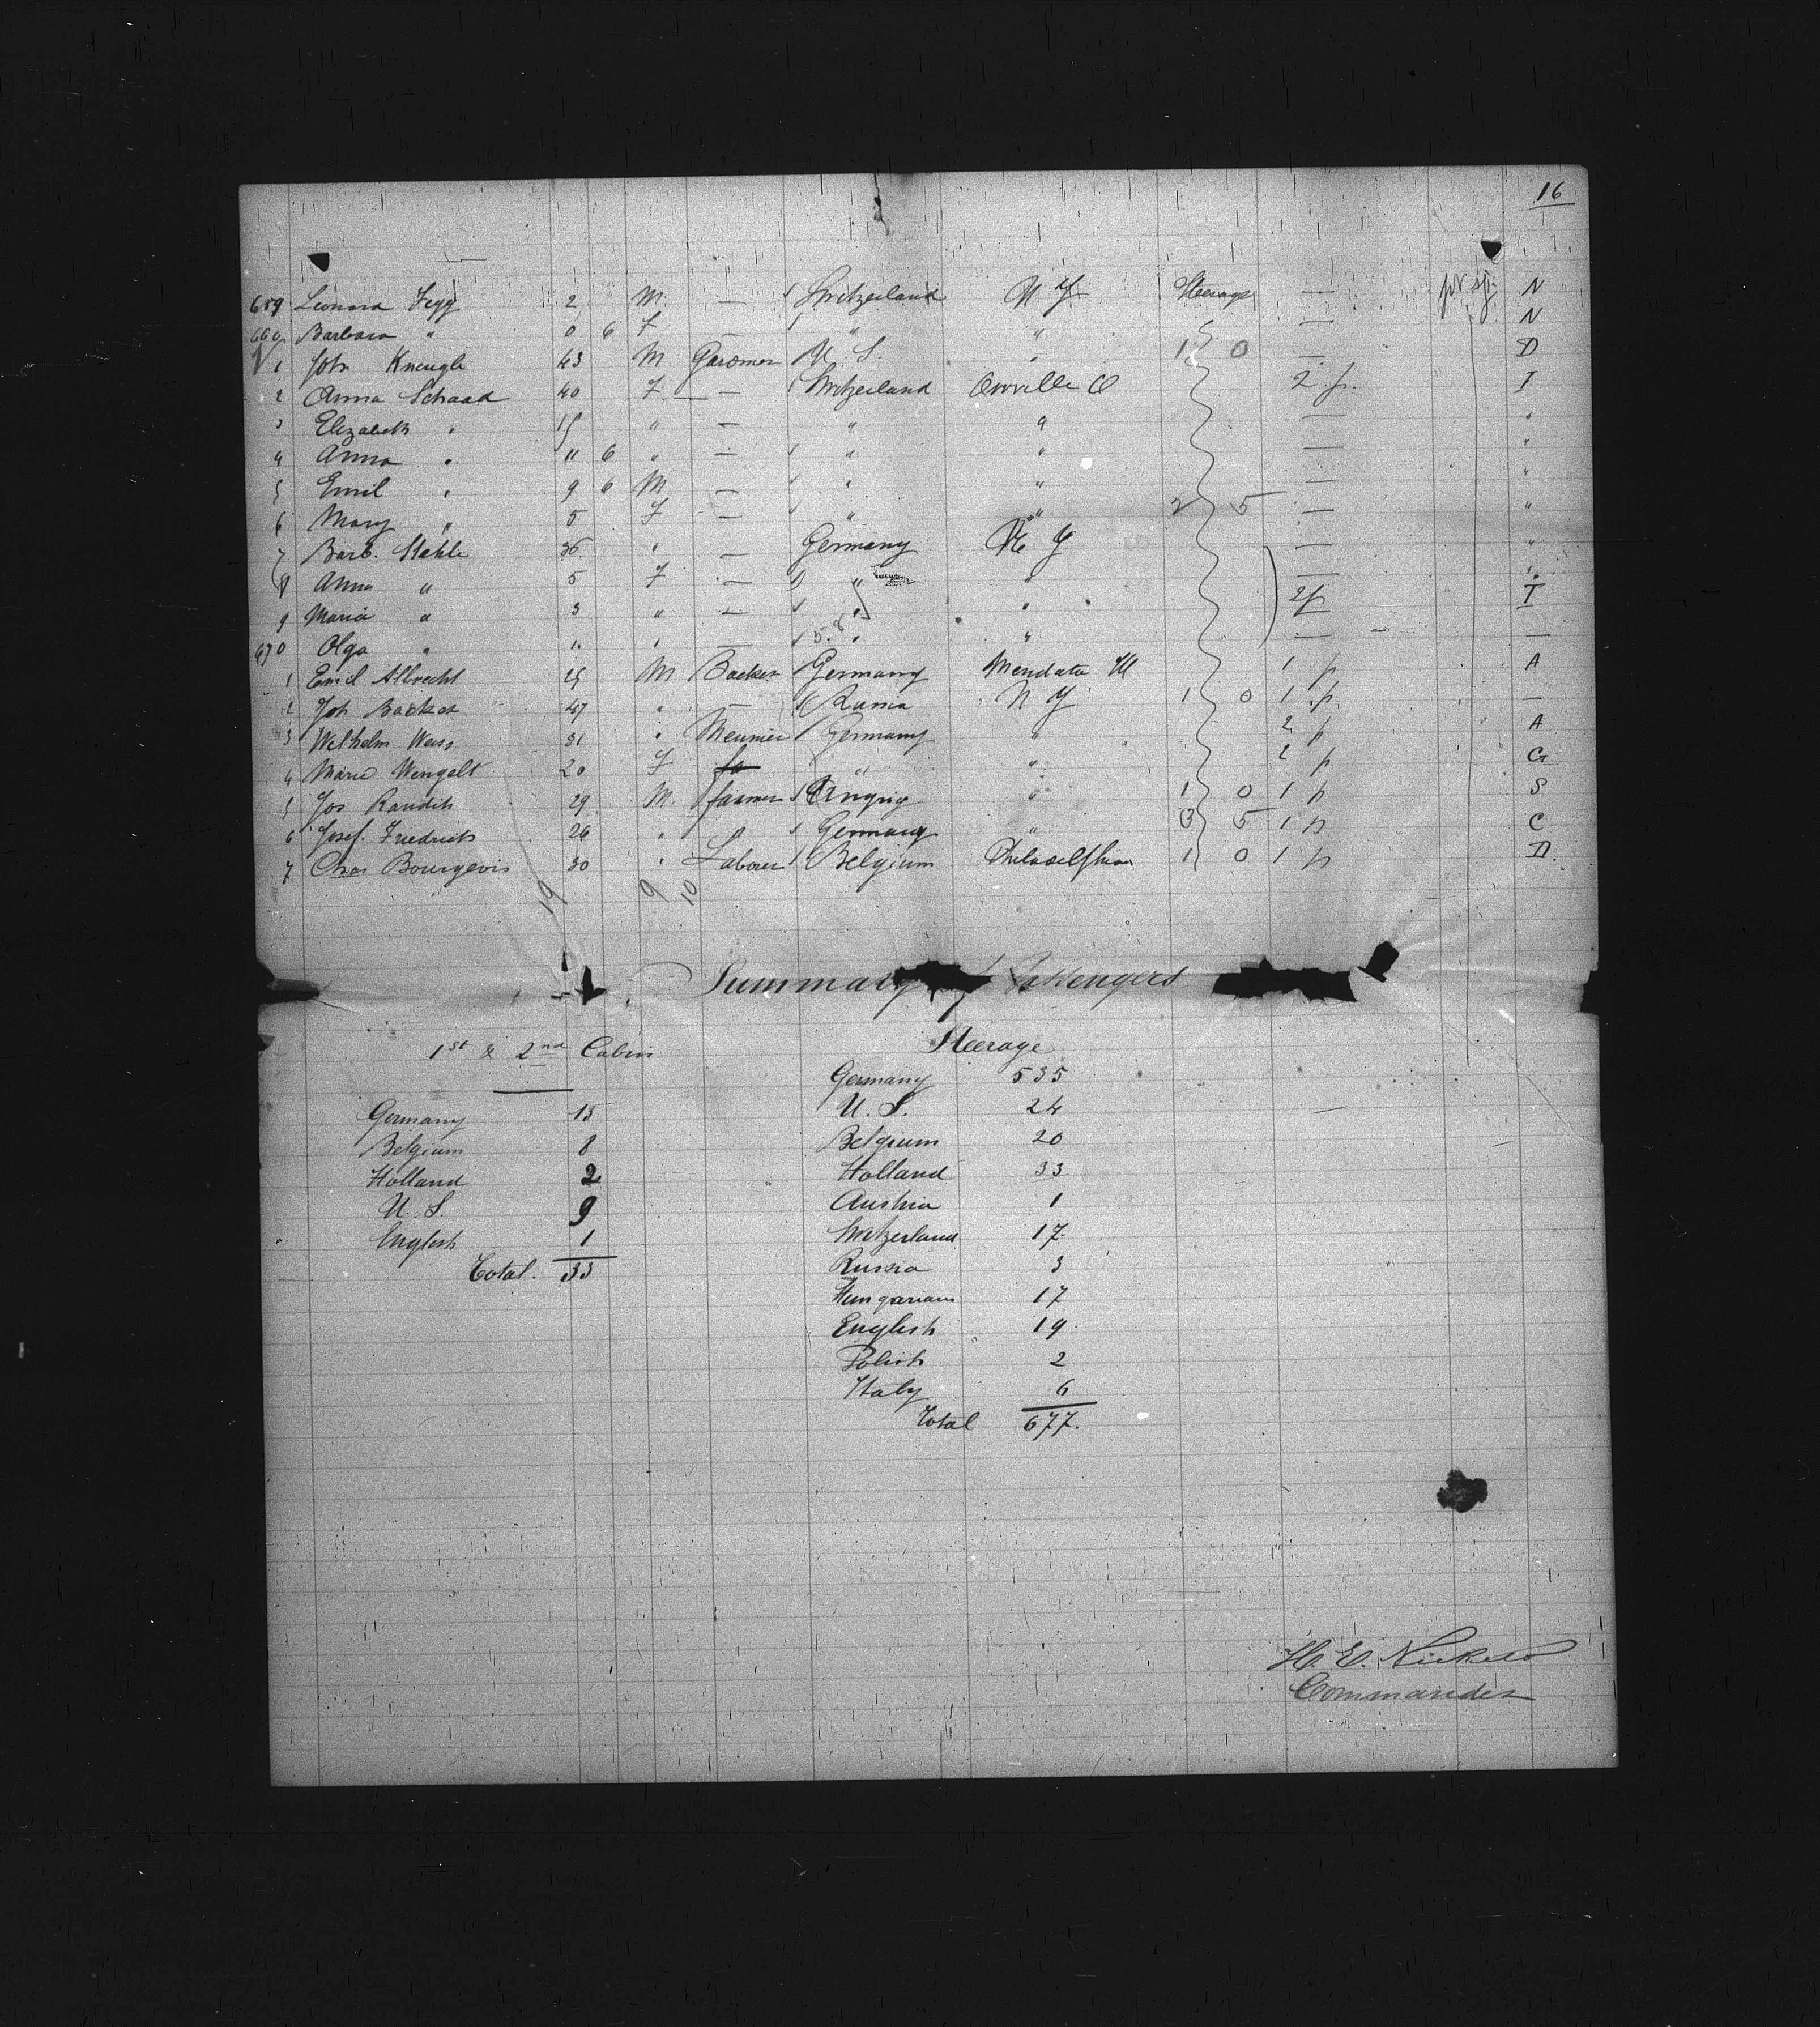 16
659 Leonard Jegg 2 M — Switzerland N Y Steerage — N
660 Barbara " 0 6 F — " " — N
1 Joh Kneugle 43 M Gardmer U. S. " 1 0 — D
2 Anna Schaad 40 F — Switzerland Orrville O 2 p. I
3 Elizabeth " 15 " — " " "
4 Anna " 11 6 " — " " — "
5 Emil " 9 6 M — " " — "
6 Mary " 5 F — " " 2 5 — "
7 Barb. Stehle 36 " — Germany N Y — "
8 Anna " 5 F — " " — "
9 Maria " 3 " — " " 2 p I
670 Olga " " — " " — —
1 Emil Albrecht 25 M Backer Germany Mendata Ill 1 p A
2 Joh Backer 47 " — Russia N Y 1 0 1 p. —
3 Wilhelm Weiss 31 " Meunier Germany " 2 p A
4 Marie Wengelt 20 F " " 2 p G
5 Jos Randith 29 M. farmer " 1 0 1 p S
6 Josef. Friedrich 26 " Germany " 3 5 1 p C
7 Chas Bourgeois 30 " Labourer Belgium Philadelphia 1 0 1 p D
19 9 10
Summary of Passengers
1st & 2nd Cabin Steerage
Germany 535
Germany 13 U. S. 24
Belgium 8 Belgium 20
Holland 2 Holland 33
U. S. 9 Austria 1
English 1 Switzerland 17
Total. 33 Russia 3
Hungarians 17
English 19
Polish 2
Italy 6
Total 677.
H. E. Nickels
Commander